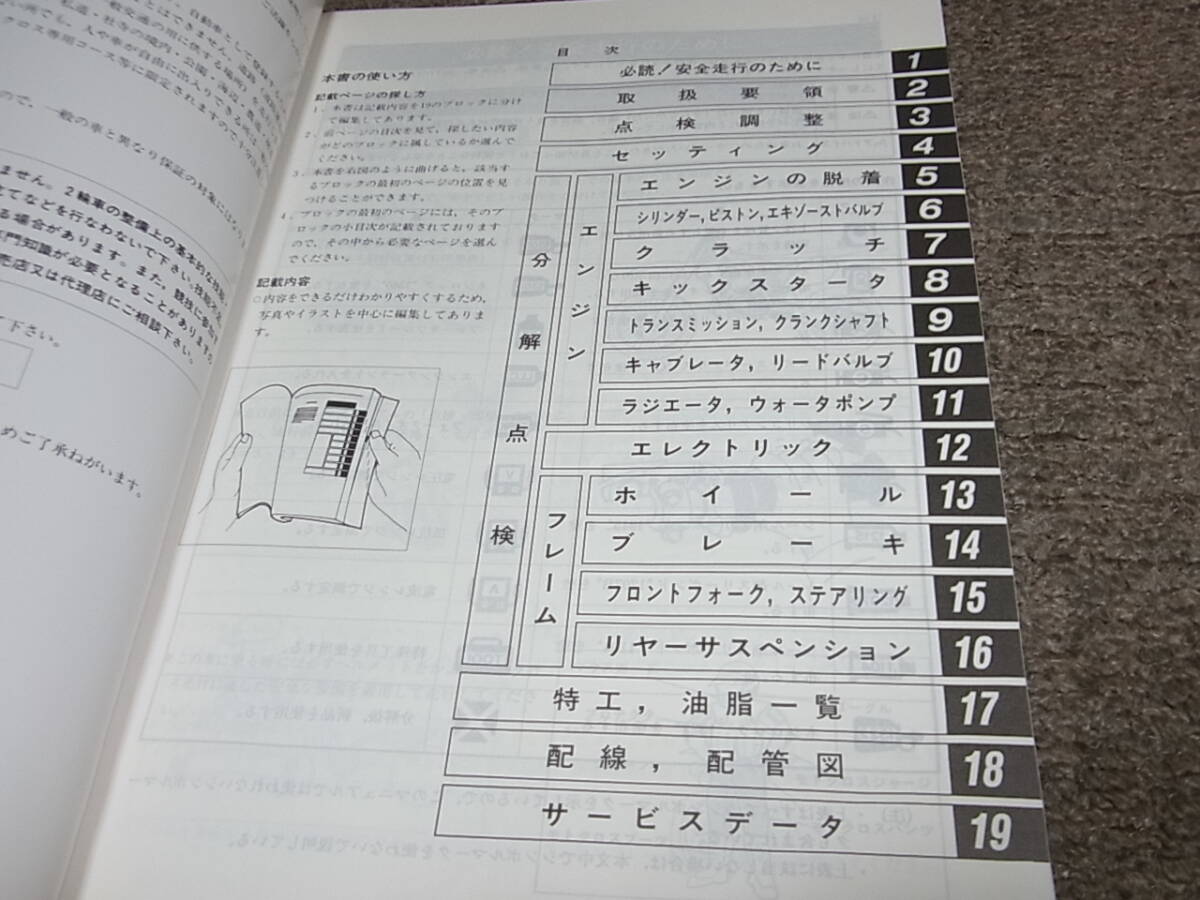 登録す
自動車として
ことはできません。
般交通の用に供する場所)を
私道・社寺の境内・公園・海辺・農道・
人や車が自由に出入りできる所は
ロス専用コース等に限定されますので
ので、一般の車と異なり保証の対象には
ません。2輪車の整備上の基本的な技能・
てなどを行なわないで下さい。技能不足、
る場合があります。また、競技に参加す
門知識が必要となることがありますの
売店又は代理店にご相談下さい。
て下さい。
めご了承ねがいます。
本書の使い方
記載ページの探し方
1、本書は記載内容を19のブロックに分け
て編集してあります。
2、前ページの目次を見て、探したい内容
がどのブロックに属しているか選んで
ください。
3、本書を右図のように曲げると、該当す
るブロックの最初のページの位置を見
つけることができます。
4、ブロックの最初のページには、そのブ
ロックの小目次が記載されております
ので、その中から必要なページを選ん
でください。
記載内容
○内容をできるだけわかりやすくするため、
写真やイラストを中心に編集してありま
す。
目 次
必読!安全走行のために 1
取扱要領 2
点検調整 3
セッティング 4
分解点検
エンジン
エンジンの脱着 5
シリンダー,ピストン,エキゾーストバルブ 6
クラッチ 7
キックスタータ 8
トランスミッション,クランクシャフト 9
キャブレータ,リードバルブ 10
ラジエータ,ウォータポンプ 11
エレクトリック 12
フレーム
ホイール 13
ブレーキ 14
フロントフォーク,ステアリング 15
リヤーサスペンション 16
特工,油脂一覧 17
配線,配管図 18
サービスデータ 19